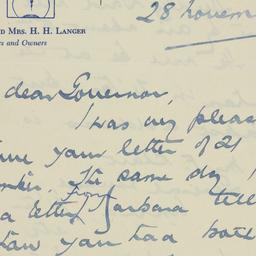 D MRS. H. H. LANGER
rs and Owners
28 novem
dear Governor,
I was my pleas
your letter of 21
The same day I
a letter from Barbara tell
you had both